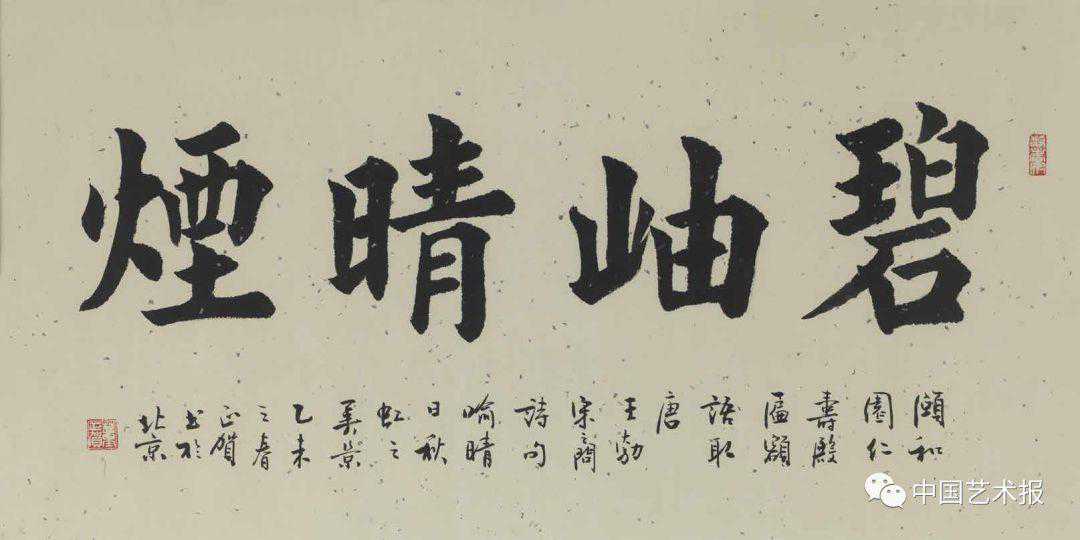 碧岫晴煙
頤和
園仁
壽殿
匾額
語取
唐
王勃
宋之問
詩句
喻晴
日秋
虹之
美景
乙未
之春
正賀
書於
北京
中国艺术报